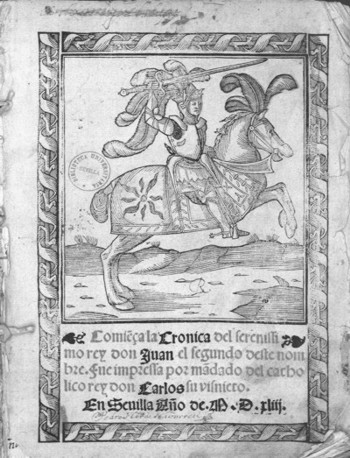 Comiẽça la Cronica del serenissi
mo rey don Juan el segundo deste nom
bre. Fue impressa por mãdado del catho
lico rey don Carlos su visnieto.
En Sevilla Año de. M. D. xliij.